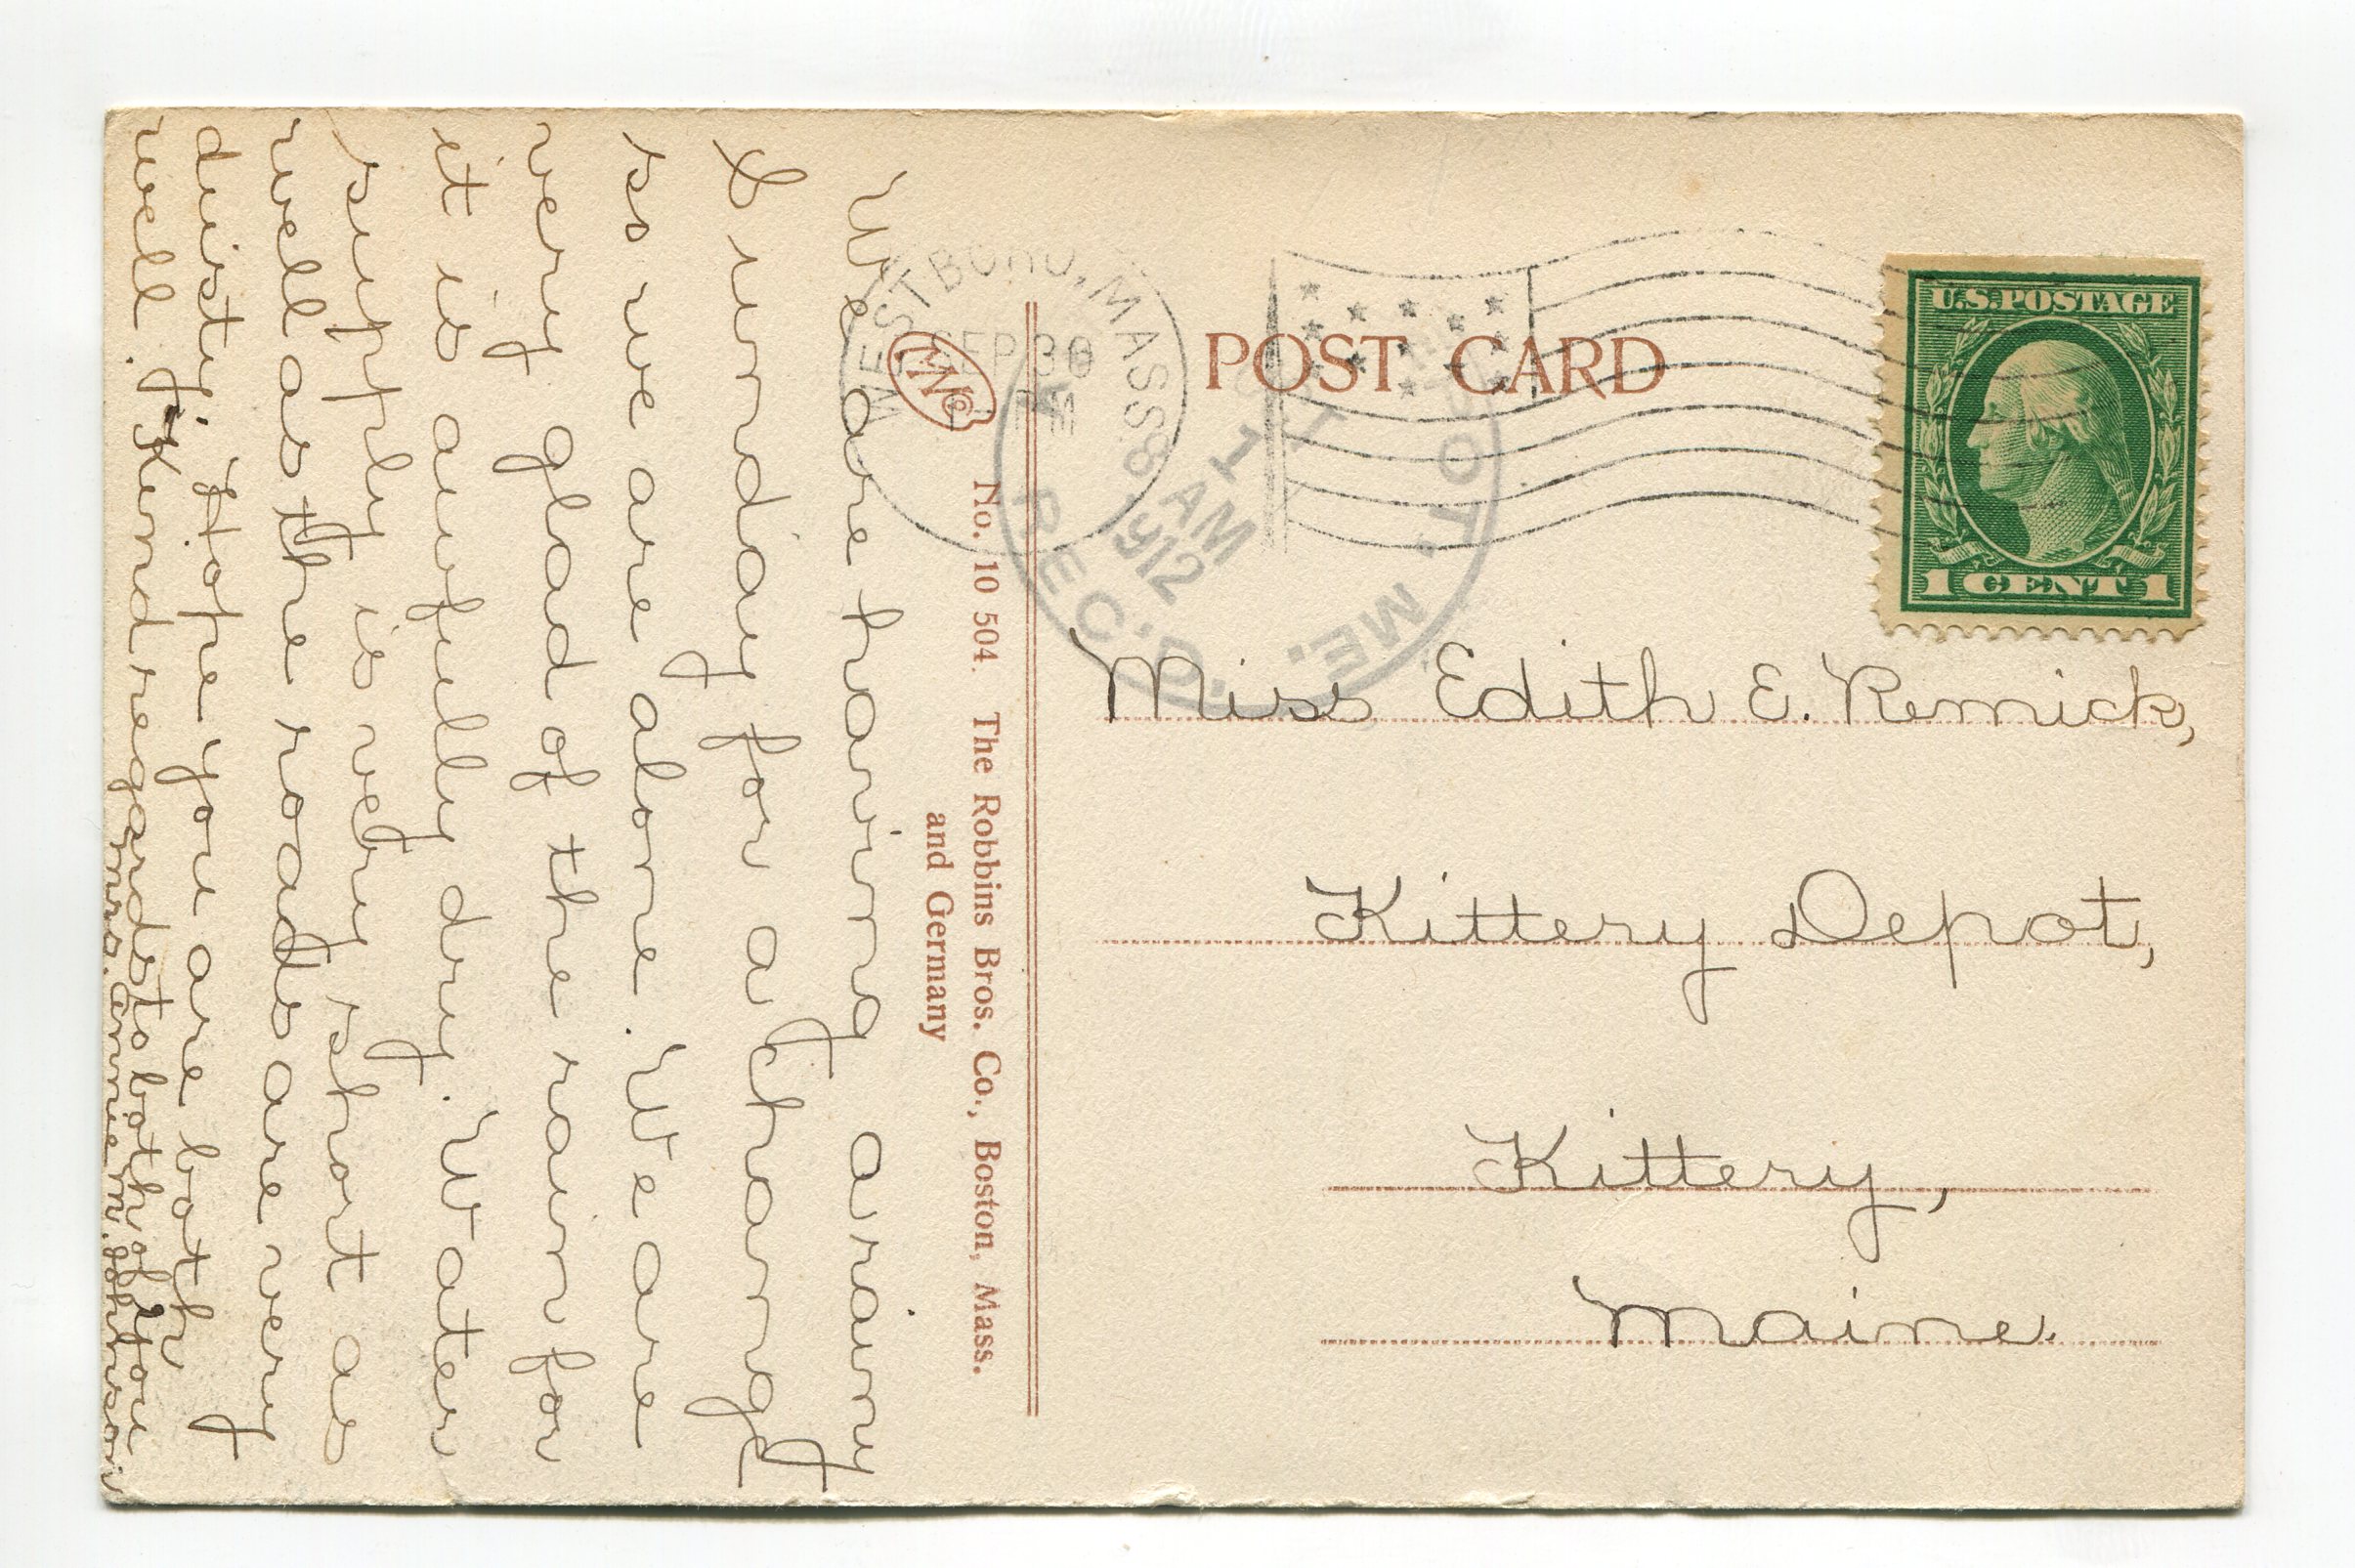 We are having a rainy
Sunday for a change
so we are alone. We are
very glad of the rain for
it is awfully dry. Water
supply is very short as
well as the roads are very
duisty. Hope you are both
well. Kind regards to both of you
Mrs. Annie M. Johnson
No. 10 504. The Robbins Bros. Co., Boston, Mass.
and Germany
POST CARD
WESTBORO, MASS.
SEP 30
U.S. POSTAGE
1 CENT 1
DEPOT, ME.
OCT 1
8 AM
1912
REC'D.
Miss Edith E. Remick,
Kittery Depot,
Kittery,
Maine.